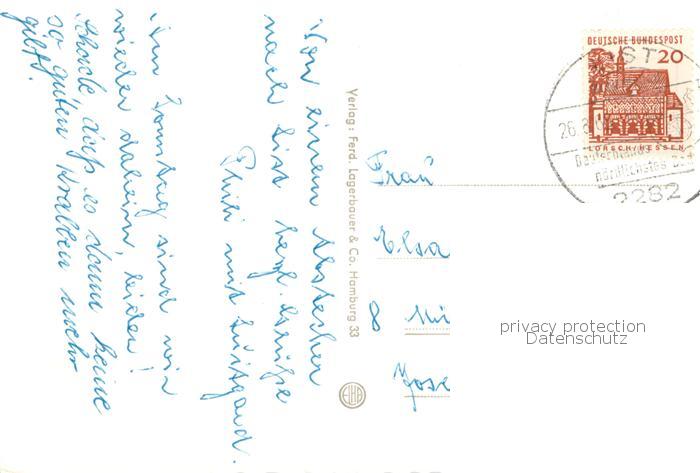 Von einem Abstecher
nach List herzl. Grüße
Philli mit Luitgard.
Am Sonntag sind wir
wieder daheim, leider!
Schade daß es dann keine
so guten Krabben mehr
gibt.
Verlag: Ferd. Lagerbauer & Co. Hamburg 33
ELHA
DEUTSCHE BUNDESPOST
20
LORSCH/HESSEN
LIST
26.8
Deutschlands
nördlichstes
2282
Frau
Elsa
8 Mü
Jose
privacy protection
Datenschutz